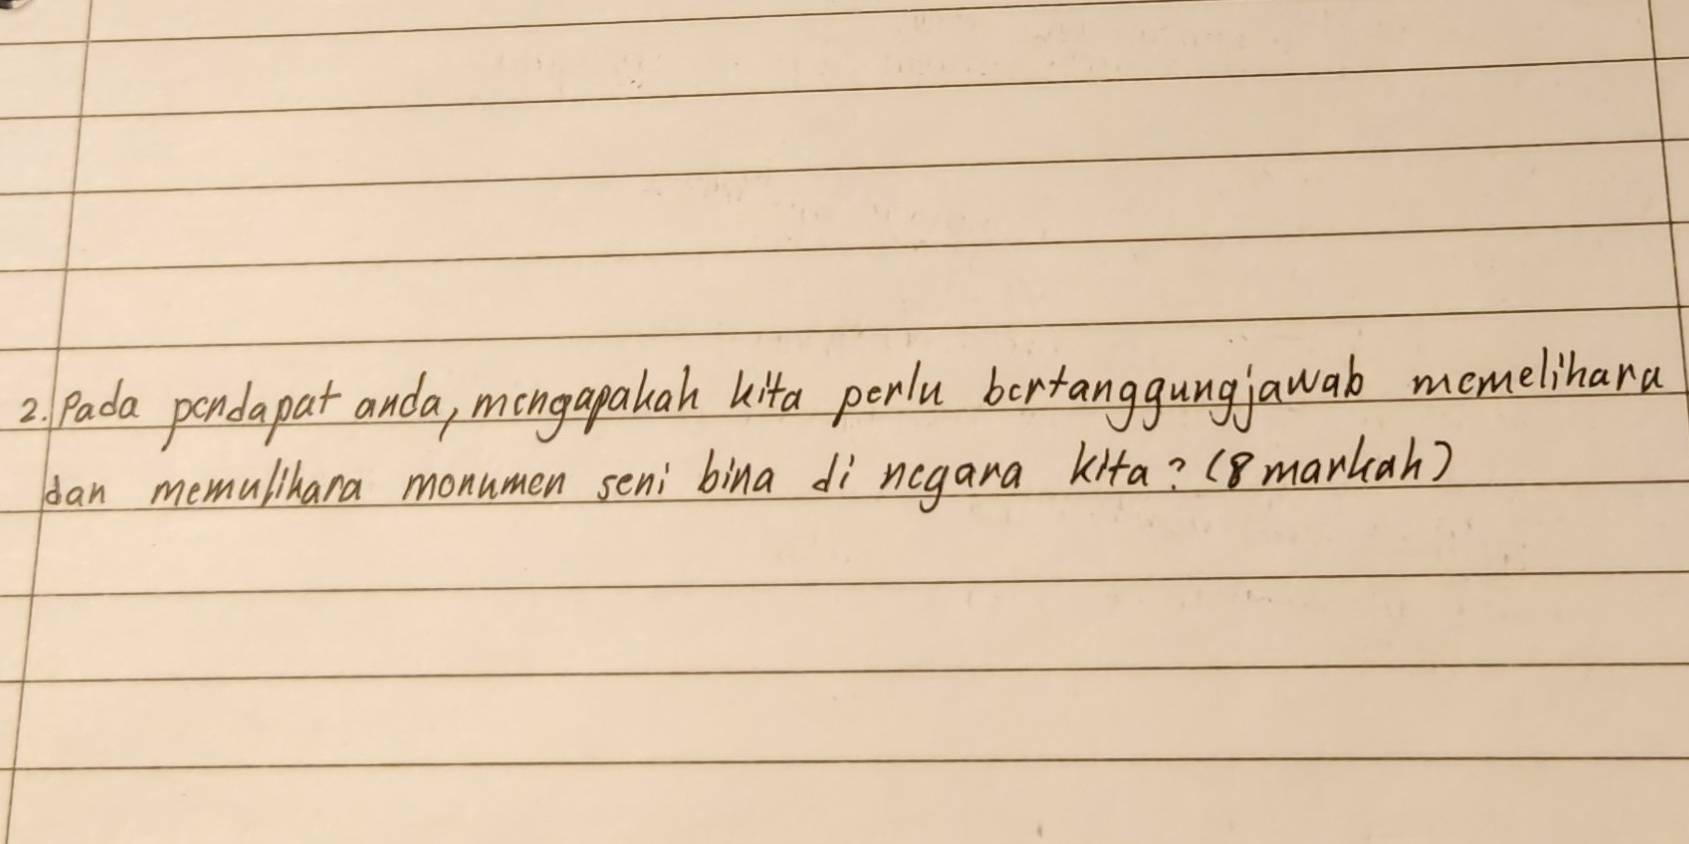 2. Pada pendapat anda, mengapakah kita perlu bertanggungjawab memelihara
dan memulihara monumen seni bina di negara kita? (8 markah)